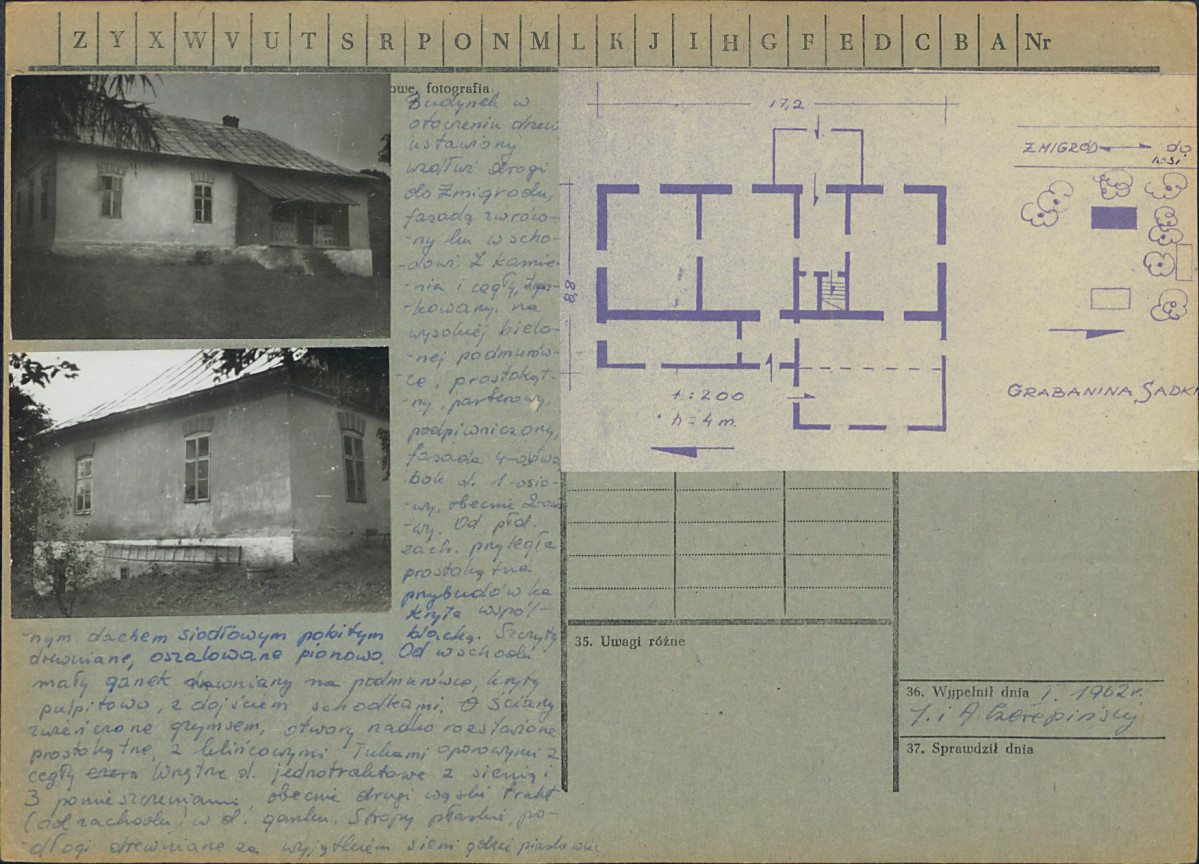 Z Y X W V U T S R P O N M L K J I H G F E D C B A Nr
owe, fotografia
Budynek w
otoczeniu drzew
ustawiony
wzdłuż drogi
do Żmigrodu,
fasadą zwróco-
-ny ku wscho-
-dowi. Z kamie-
-nia i cegły,
-kowany. na
wysokiej bielo-
-nej podmurów-
-ce, prostokąt-
-ny, parterowy,
podpiwniczony,
fasada 4-osiowa
bok d. 1-osio-
-wy, obecnie 2-osio
-wy. Od płd.
zach. przyległa
prostokątna
przybudówka
kryta wspól-
-nym dachem siodłowym pobitym blachą. Szczyty
drewniane, oszalowane pionowo. Od wschodu
mały ganek drewniany na podmurówce, kryty
pulpitowo, z dojściem schodkami. Ściany
zwieńczone gzymsem, otwory rzadko rozstawione
prostokątne, z łukami oporowymi z
cegły Wnętrze d. jednotraktowe z sienią i
3 pomieszczeniami, obecnie drugi wąski trakt
(od zachodu) w d. ganku. Stropy płaskie, po-
-dłogi drewniane za wyjątkiem sieni gdzie
17,2
8,8
1:200
h = 4 m.
ŻMIGRÓD do
wsi
GRABANINA, SADKI
35. Uwagi różne
36. Wypełnił dnia I. 1962 r.
J. i A Czerepińscy
37. Sprawdził dnia